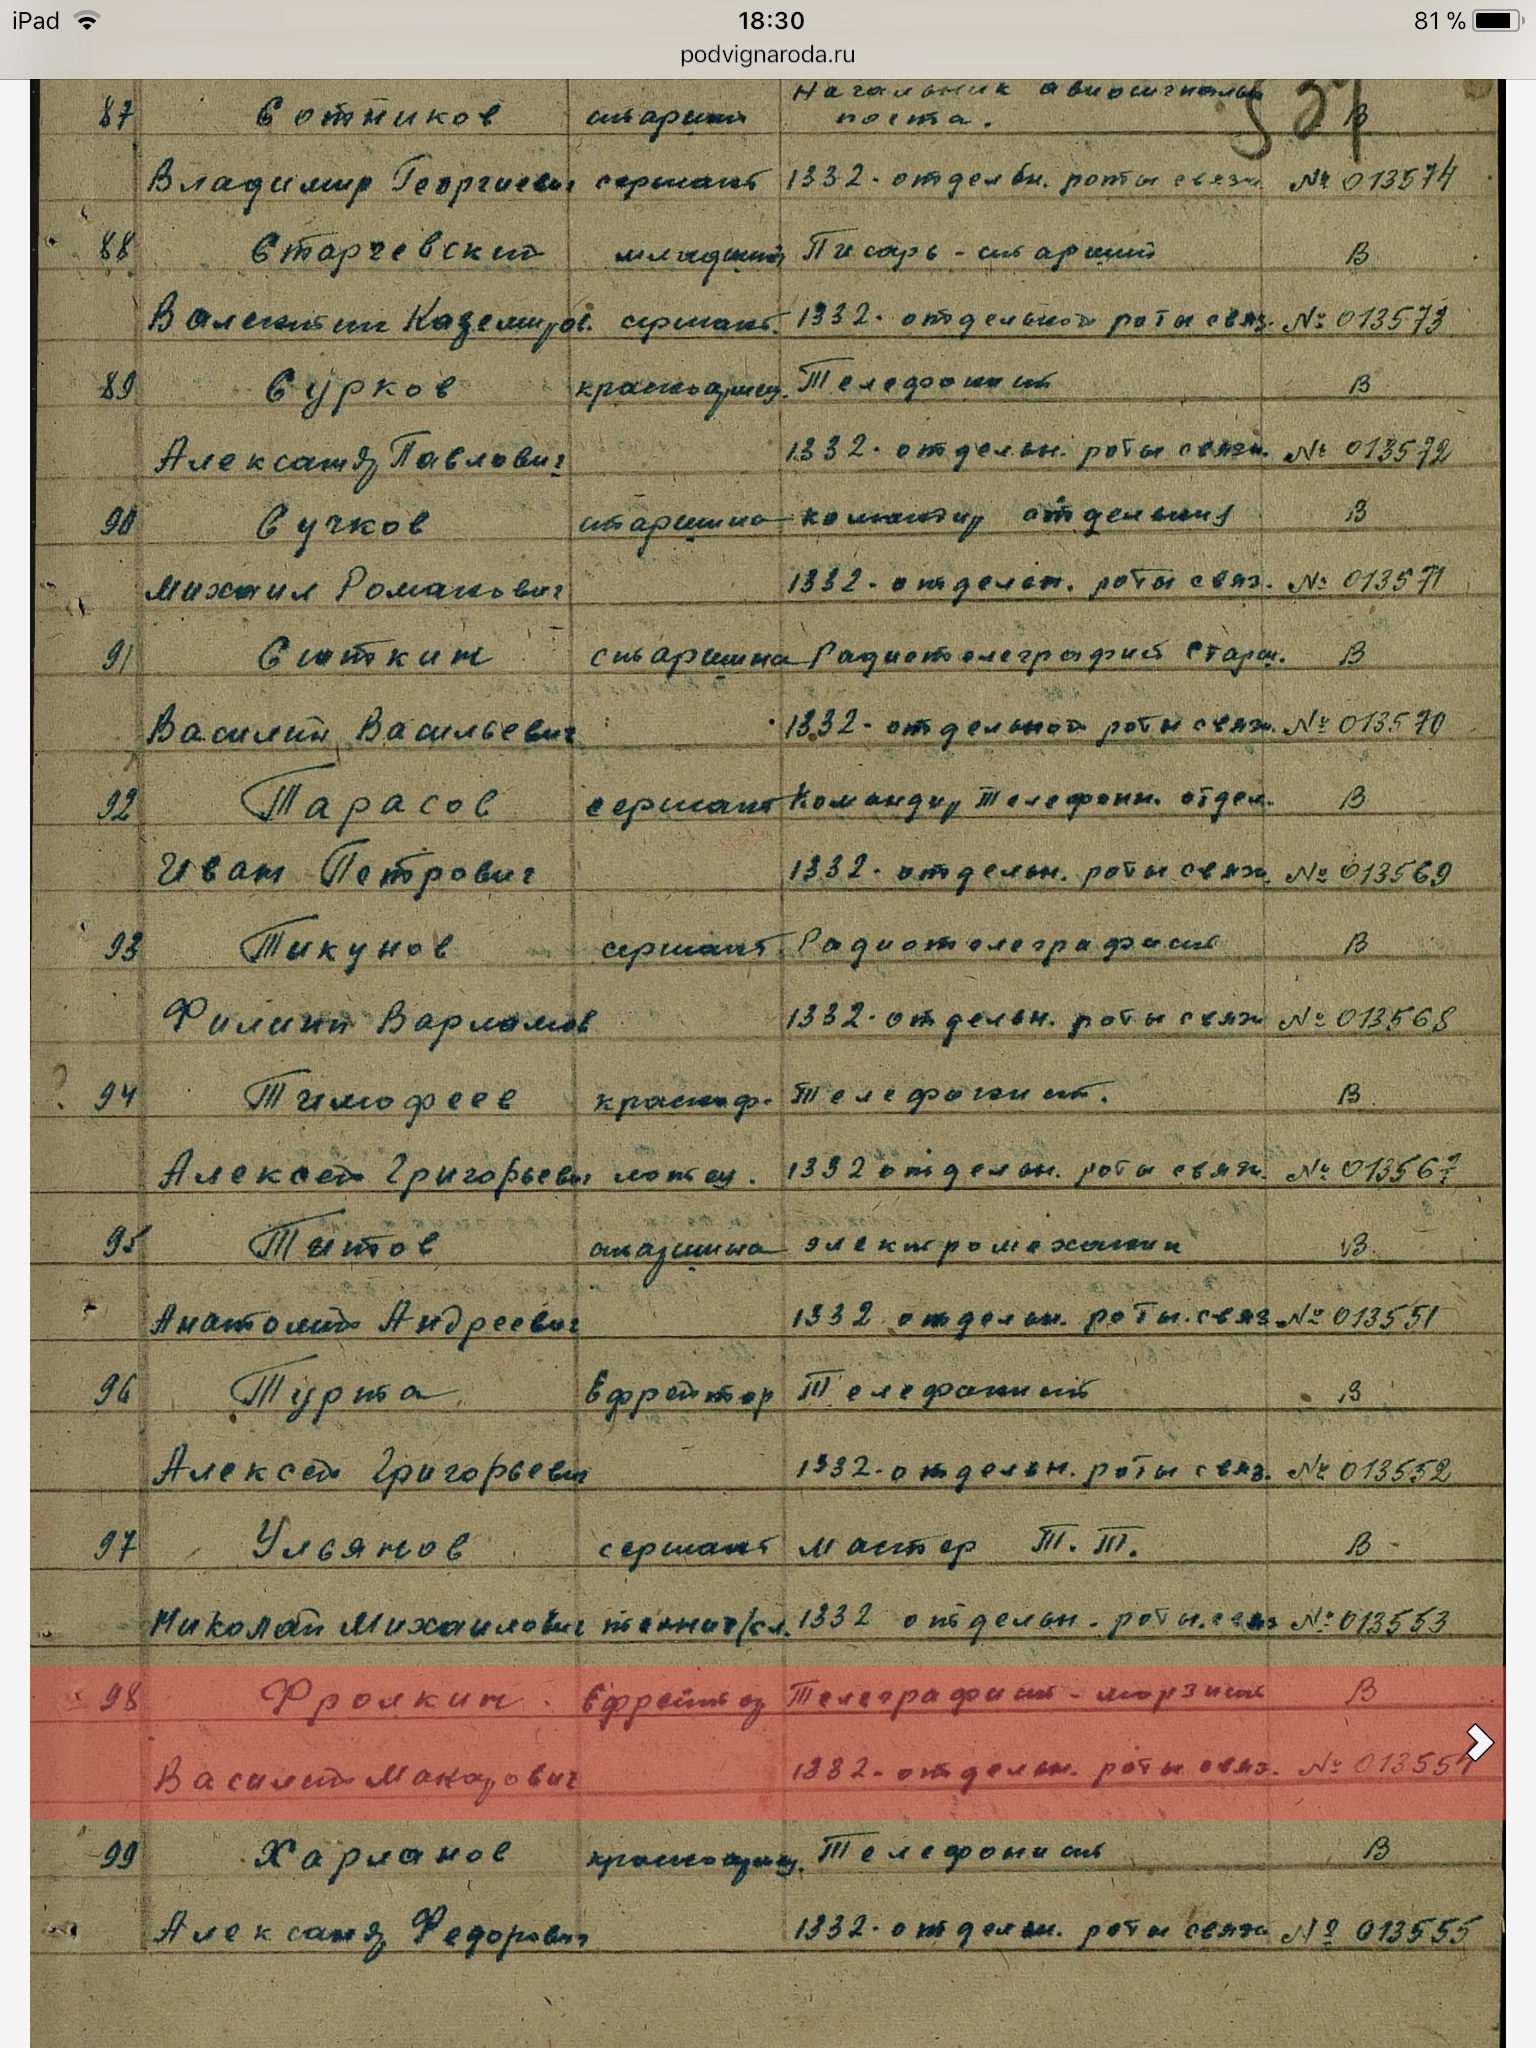 iPad 18:30 81 %
podvignaroda.ru
начальник авиосигнальн
87 Сотников старший поста. В
Владимир Георгиевич сержант 1332. отдельн. роты связи № 013574
88 Старчевский младший Писарь-старший В
Валентин Каземиров. сержант. 1332. отдельной роты связ. № 013573
89 Сурков красноармеец. Телефонист В
Александр Павлович 1332. отдельн. роты связи. № 013572
90 Сучков старшина командир отделения В
Михаил Романович 1332. отдельн. роты связ. № 013571
91 Сюткин старшина Радиотелеграфист Старш. В
Василий Васильевич 1332. отдельной роты связи. № 013570
92 Тарасов сержант Командир Телефонн. отдел. В
Иван Петрович 1332. отдельн. роты связи. № 013569
93 Тикунов сержант Радиотелеграфист В
Филипп Варламов 1332. отдельн. роты связи № 013568
94 Тимофеев красноф. Телефонист. В
Алексей Григорьевич лотец. 1332 отдельн. роты связи. № 013567
95 Титов старшина электромеханик В
Анатолий Андреевич 1332 отдельн. роты. связ. № 013551
96 Турта Ефрейтор Телефонист В
Алексей Григорьевич 1332. отдельн. роты связ. № 013552
97 Ульянов сержант мастер Т.Т. В
Николай Михаилович 1332 отдельн. роты. связ № 013553
98 Фролкин Ефрейтор Телеграфист-морзист В
Василий Макарович 1332. отдельн. роты связ. № 013554
99 Харланов красноармеец. Телефонист В
Александр Федорович 1332. отдельн. роты связи № 013555